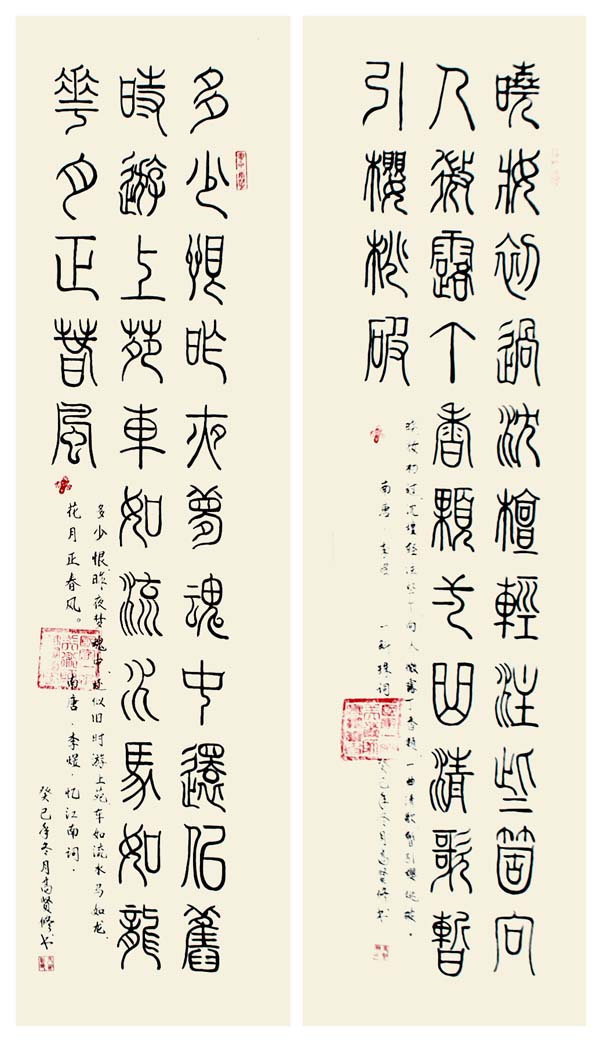 曉妝初過沈檀輕注些箇向
人微露丁香顆一曲清歌暫
引櫻桃破
晓妆初过沉檀轻注些个向人微露丁香颗一曲清歌暂引樱桃破。
南唐·李煜 一斛珠词 癸巳年冬月高贤修书
多少恨昨夜夢魂中還佀舊
時遊上苑車如流水馬如龍
華月正春風
多少恨昨夜梦魂中还似旧时游上苑车如流水马如龙
花月正春风。南唐·李煜·忆江南词·
癸巳年冬月高贤修书